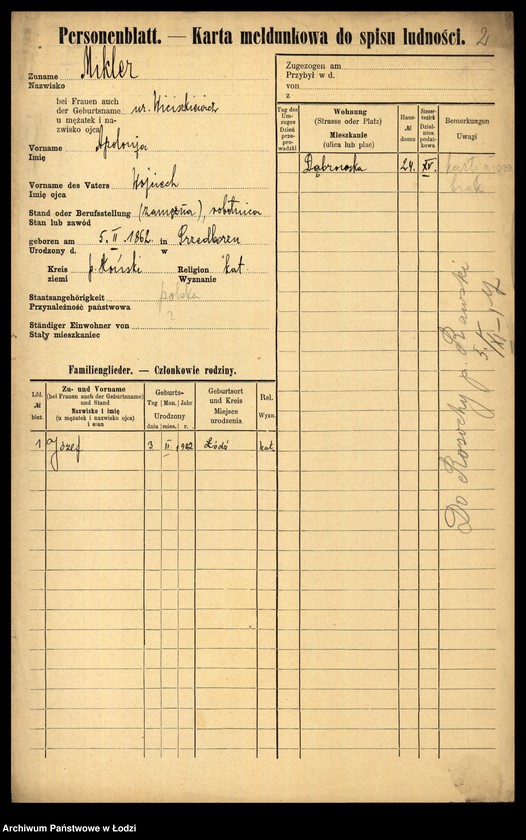 Personenblatt. — Karta meldunkowa do spisu ludności. 2
Zuname Mikler
Nazwisko
bei Frauen auch
der Geburtsname ur.
u mężatek i na-
zwisko ojca
Vorname Apolonija
Imię
Vorname des Vaters Wojciech
Imię ojca
Stand oder Berufsstellung (zamężna), robotnica
Stan lub zawód
geboren am 5. II. 1862. in Przedborzu
Urodzony d. w
Kreis p. Koński Religion kat
ziemi Wyznanie
Staatsangehörigkeit polska
Przynależność państwowa ?
Ständiger Einwohner von
Stały mieszkaniec
Familienglieder. — Członkowie rodziny.
Lfd. № bież.
Zu- und Vorname
(bei Frauen auch der Geburtsname)
und Stand
Nazwisko i imię
(u mężatek i nazwisko ojca)
i stan
Geburts-
Tag Mon. Jahr
Urodzony
dnia mies. r.
Geburtsort
und Kreis
Miejsce
urodzenia
Rel.
Wyzn.
1 Józef 3 II 1902 Łódź kat.
Zugezogen am
Przybył w d.
von
z
Tag des
Um-
zuges
Dzień
prze-
prowadzki
Wohnung
(Strasse oder Platz)
Mieszkanie
(ulica lub plac)
Haus-
№
domu
Steuer-
bezirk
Dziel-
nica
podat-
kowa
Bemerkungen
Uwagi
Dąbrowska 24. XV.
brak
Do Rosochy p. Rawski